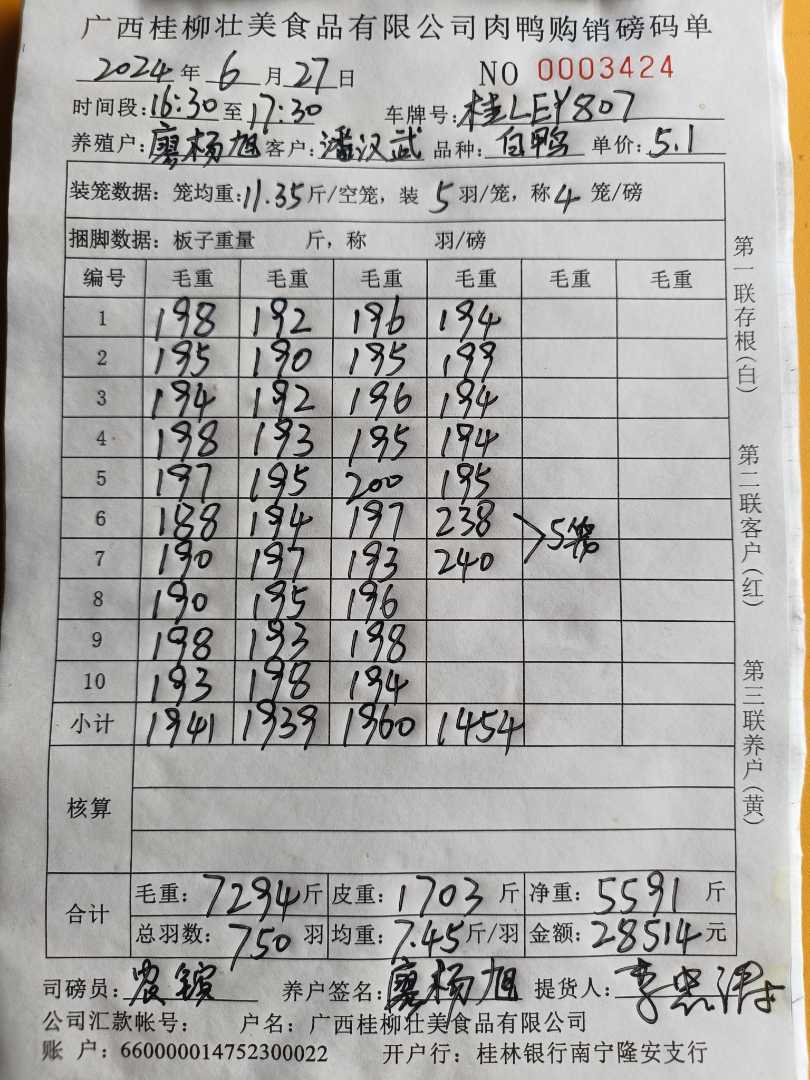 广西桂柳壮美食品有限公司肉鸭购销磅码单
2024 年 6 月 27 日 NO 0003424
时间段: 16:30 至 17:30 车牌号: 桂LEY807
养殖户: 廖杨旭 客户: 潘汉武 品种: 白鸭 单价: 5.1
装笼数据: 笼均重: 11.35 斤/空笼, 装 5 羽/笼, 称 4 笼/磅
捆脚数据: 板子重量 斤, 称 羽/磅
编号 毛重 毛重 毛重 毛重 毛重 毛重
1 198 192 196 194
2 195 190 195 199
3 194 192 196 194
4 198 193 195 194
5 197 195 200 195
6 188 194 197 238
5笼
7 190 197 193 240
8 190 195 196
9 198 193 198
10 193 198 194
小计 1941 1939 1960 1454
核算
合计 毛重: 7294 斤 皮重: 1703 斤 净重: 5591 斤
总羽数: 750 羽 均重: 7.45 斤/羽 金额: 28514 元
司磅员: 农镔 养户签名: 廖杨旭 提货人: 李
公司汇款帐号: 户名: 广西桂柳壮美食品有限公司
账 户: 660000014752300022 开户行: 桂林银行南宁隆安支行
第一联存根(白)
第二联客户(红)
第三联养户(黄)